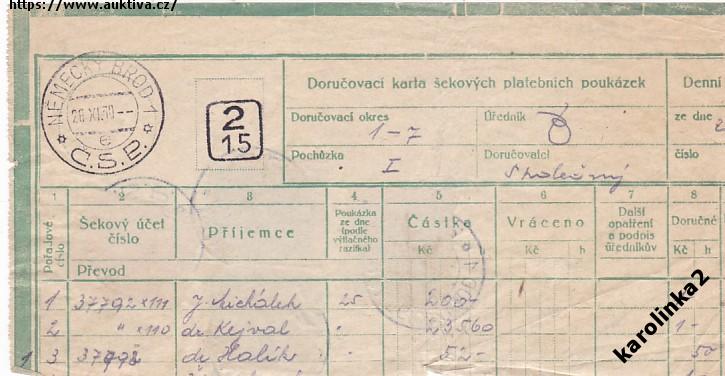 https://www.auktiva.cz/
NĚMECKÝ BROD 1
26.XI.39--
e
Č.S.P.
2
15
Doručovací karta šekových platebních poukázek
Denní
Doručovací okres
1-7
Úředník
ze dne 2
Pochůzka
I
Doručovatel
číslo
1 2 3 4 5 6 7 8
Pořadové číslo
Šekový účet číslo
Příjemce
Poukázka ze dne (podle výtlačného razítka)
Částka
Vráceno
Další opatření a podpis úředníkův
Doručné
Převod
Kč h
Kč h
Kč h
1 37792×111 J. Micháleh 25 200-
2 " ×110 dr. Kejval " 23560 1-
1 3 dr. Halík " 52- 50
karolinka2